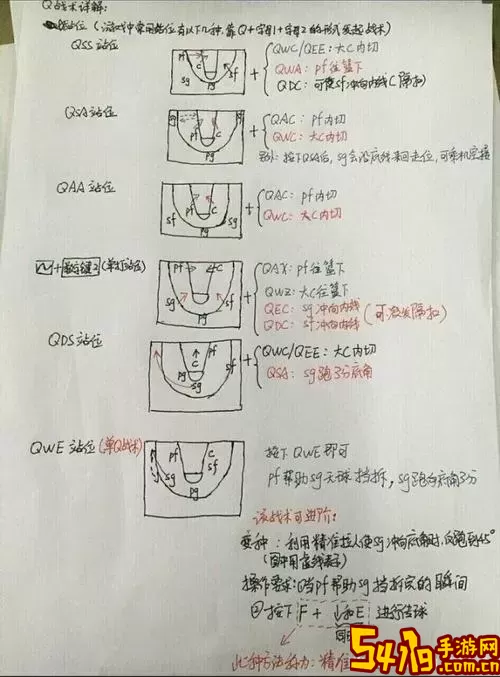 Q战术详解:
站位 (游戏中常用站位有以下几种,靠Q+字母1+字母2的形式发起战术)
QSS 站位
pf
C
sg
sf
pg
+
QWC/QEE: 大C内切
QWA: pf往篮下
QDC: 可使sf冲向内线(隔扣)
QSA站位
sg
pf
C
sf
pg
+
QAC: pf内切
QWC: 大C内切
另外: 按下QSA后, sg会沿底线来回走位, 可乘机空接
QAA 站位
sf
pf
C
sg
pg
+
QAC: pf内切
QWC: 大C内切
+数字键2 (单打站位)
pf
C
sg
sf
pg
+
QAX: pf往篮下
QWZ: 大C往篮下
QEC: sg冲向内线
QDC: sf冲向内线
(可激发隔扣)
QDS站位
C
pf
sf
sg
pg
+
QWC/QEE: 大C内切
QSA: sg跑3分底角
QWE 站位(单Q战术)
pf
C
sg
sf
pg
按下 QWE 即可
pf帮助sg无球挡拆, sg跑向底角3分
该战术可进阶:
变种: 利用精准拉人使sg冲向底角时, 反跑到45°
(图中用虚线表示)
操作要求: ①当pf帮助sg挡拆完的瞬间
② 按下 F + ↓和E 进行传球
同时
此种方法称为: 精准
5419手游网
.com